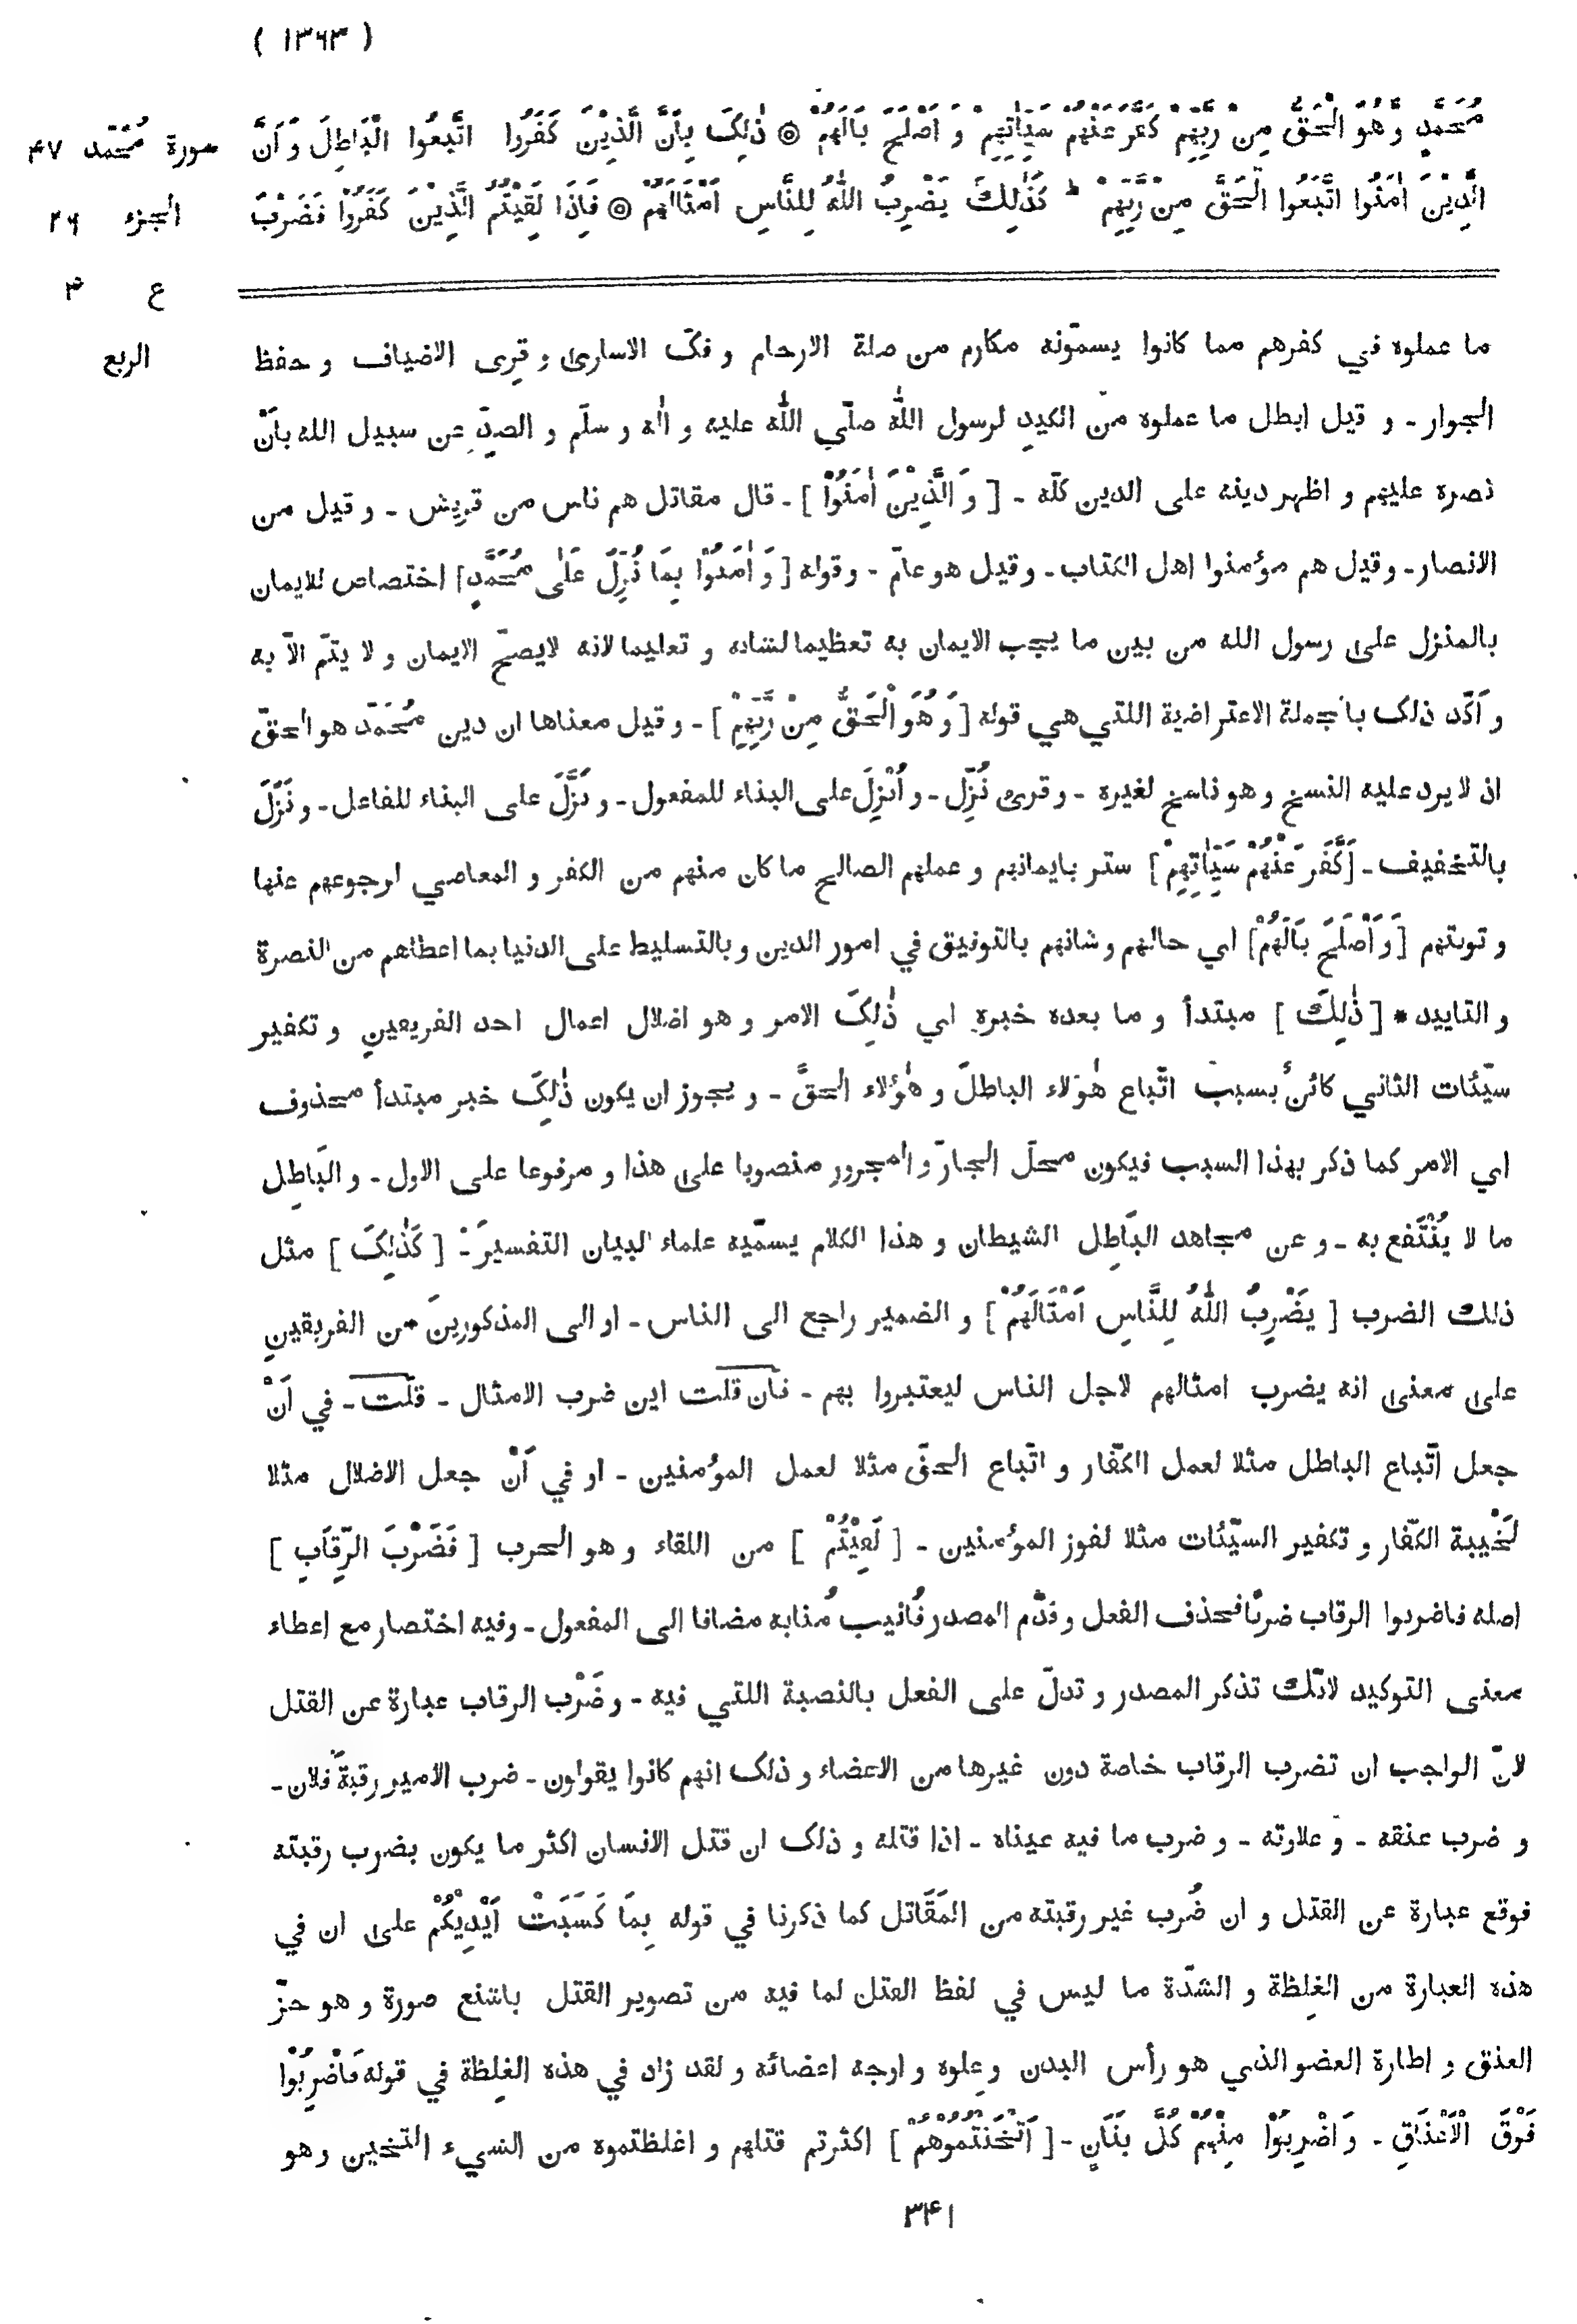 ( ١٣٦٣ )
مُحَمَّدٍ وَّهُوَ الْحَقُّ مِنْ رَّبِّهِمْ كَفَّرَ عَنْهُمْ سَيِّاٰتِهِمْ وَ اَصْلَحَ بَالَهُمْ ۞ ذٰلِكَ بِاَنَّ الَّذِيْنَ كَفَرُوا اتَّبَعُوا الْبَاطِلَ وَ اَنَّ
سورة مُحَمّد ٤٧
الَّذِيْنَ اٰمَنُوا اتَّبَعُوا الْحَقَّ مِنْ رَّبِّهِمْ ط كَذٰلِكَ يَضْرِبُ اللّٰهُ لِلنَّاسِ اَمْثَالَهُمْ ۞ فَاِذَا لَقِيْتُمُ الَّذِيْنَ كَفَرُوْا فَضَرْبَ
الجزء ٢٦
ع ٣
الربع
ما عملوه في كفرهم مما كانوا يسمّونه مكارم من صلة الارحام و فكّ الاسارى و قِرى الاضياف و حفظ
الجوار ـ و قيل ابطل ما عملوه من الكيد لرسول اللّٰه صلّى اللّٰه عليه و اٰله و سلّم و الصدّ عن سبيل الله بأَنْ
نصره عليهم و اظهر دينه على الدين كلّه ـ [ وَ الَّذِيْنَ اٰمَنُوْا ] ـ قال مقاتل هم ناس من قريش ـ و قيل من
الانصار ـ وقيل هم مؤمنوا اهل الكتاب ـ وقيل هو عامّ ـ وقوله [ وَ اٰمَنُوْا بِمَا نُزِّلَ عَلٰى مُحَمَّدٍ ] اختصاص للايمان
بالمنزل على رسول الله من بين ما يجب الايمان به تعظيما لشانه و تعليما لانه لايصحّ الايمان و لا يتمّ الّا به
و اَكّد ذلك بالجملة الاعتراضية اللتي هي قوله [ وَ هُوَ الْحَقُّ مِنْ رَّبِّهِمْ ] ـ و قيل معناها ان دين مُحَمّد هو الحقّ
اذ لا يرد عليه النسخ و هو ناسخ لغيره ـ و قرئ نُزِّل ـ و اُنْزِلَ على البناء للمفعول ـ و نَزَّلَ على البناء للفاعل ـ و نَزَلَ
بالتخفيف ـ [كَفَّرَ عَنْهُمْ سَيِّاٰتِهِمْ] ستر بايمانهم و عملهم الصالح ما كان منهم من الكفر و المعاصي لرجوعهم عنها
و توبتهم [وَ اَصْلَحَ بَالَهُمْ] اي حالهم و شانهم بالتوفيق في امور الدين و بالتسليط على الدنيا بما اعطاهم من النصرة
و التاييد * [ ذٰلِكَ ] مبتدأ و ما بعده خبره اي ذٰلِكَ الامر و هو اضلال اعمال احد الفريقين و تكفير
سيّئات الثاني كائنٌ بسبب اتّباع هٰؤلاء الباطلَ و هٰؤلاء الحقَّ ـ و يجوز ان يكون ذٰلِكَ خبر مبتدأ محذوف
اي الامر كما ذكر بهذا السبب فيكون محلّ الجارّ و المجرور منصوبا على هذا و مرفوعا على الاول ـ و البَاطِل
ما لا يُنْتَفع به ـ و عن مجاهد البَاطِل الشيطان و هذا الكلام يسمّيه علماء البيان التفسير ـ [ كَذٰلِكَ ] مثل
ذلك الضرب [ يَضْرِبُ اللّٰهُ لِلنَّاسِ اَمْثَالَهُمْ ] و الضمير راجع الى الناس ـ او الى المذكورين من الفريقين
على معنى انه يضرب امثالهم لاجل الناس ليعتبروا بهم ـ فان قلت اين ضرب الامثال ـ قلت ـ في اَنْ
جعل اتّباع الباطل مثلا لعمل الكفّار و اتّباع الحقّ مثلا لعمل المؤمنين ـ او في اَنْ جعل الاضلال مثلا
لخَيْبة الكفّار و تكفير السيّئات مثلا لفوز المؤمنين ـ [ لَقِيْتُمْ ] من اللقاء و هو الحرب [ فَضَرْبَ الرِّقَابِ ]
اصله فاضربوا الرقاب ضربًا فحذف الفعل و قدّم المصدر فأنيب مُنابه مضافا الى المفعول ـ وفيه اختصار مع اعطاء
معنى التوكيد لانّك تذكر المصدر و تدلّ على الفعل بالنصبة اللتي فيه ـ و ضَرْب الرقاب عبارة عن القتل
لانّ الواجب ان تضرب الرقاب خاصة دون غيرها من الاعضاء و ذلك انهم كانوا يقولون ـ ضرب الامير رقبةَ فلان ـ
و ضرب عنقه ـ و علاوته ـ و ضرب ما فيه عيناه ـ اذا قتله و ذلك ان قتل الانسان اكثر ما يكون بضرب رقبته
فوقع عبارة عن القتل و ان ضُرب غير رقبته من المَقَاتل كما ذكرنا في قوله بِمَا كَسَبَتْ اَيْدِيْكُمْ على ان في
هذه العبارة من الغِلظة و الشدّة ما ليس في لفظ القتل لما فيه من تصوير القتل باشنع صورة و هو حزّ
العنق و اطارة العضو الذي هو رأس البدن و علوه و اوجه اعضائه و لقد زاد في هذه الغِلظة في قوله فَاضْرِبُوْا
فَوْقَ الْاَعْنَاقِ ـ وَ اضْرِبُوْا مِنْهُمْ كُلَّ بَنَانٍ ـ [ اَثْخَنْتُمُوْهُمْ ] اكثرتم قتلهم و اغلظتموه من الشيء الثخين و هو
٣٤١